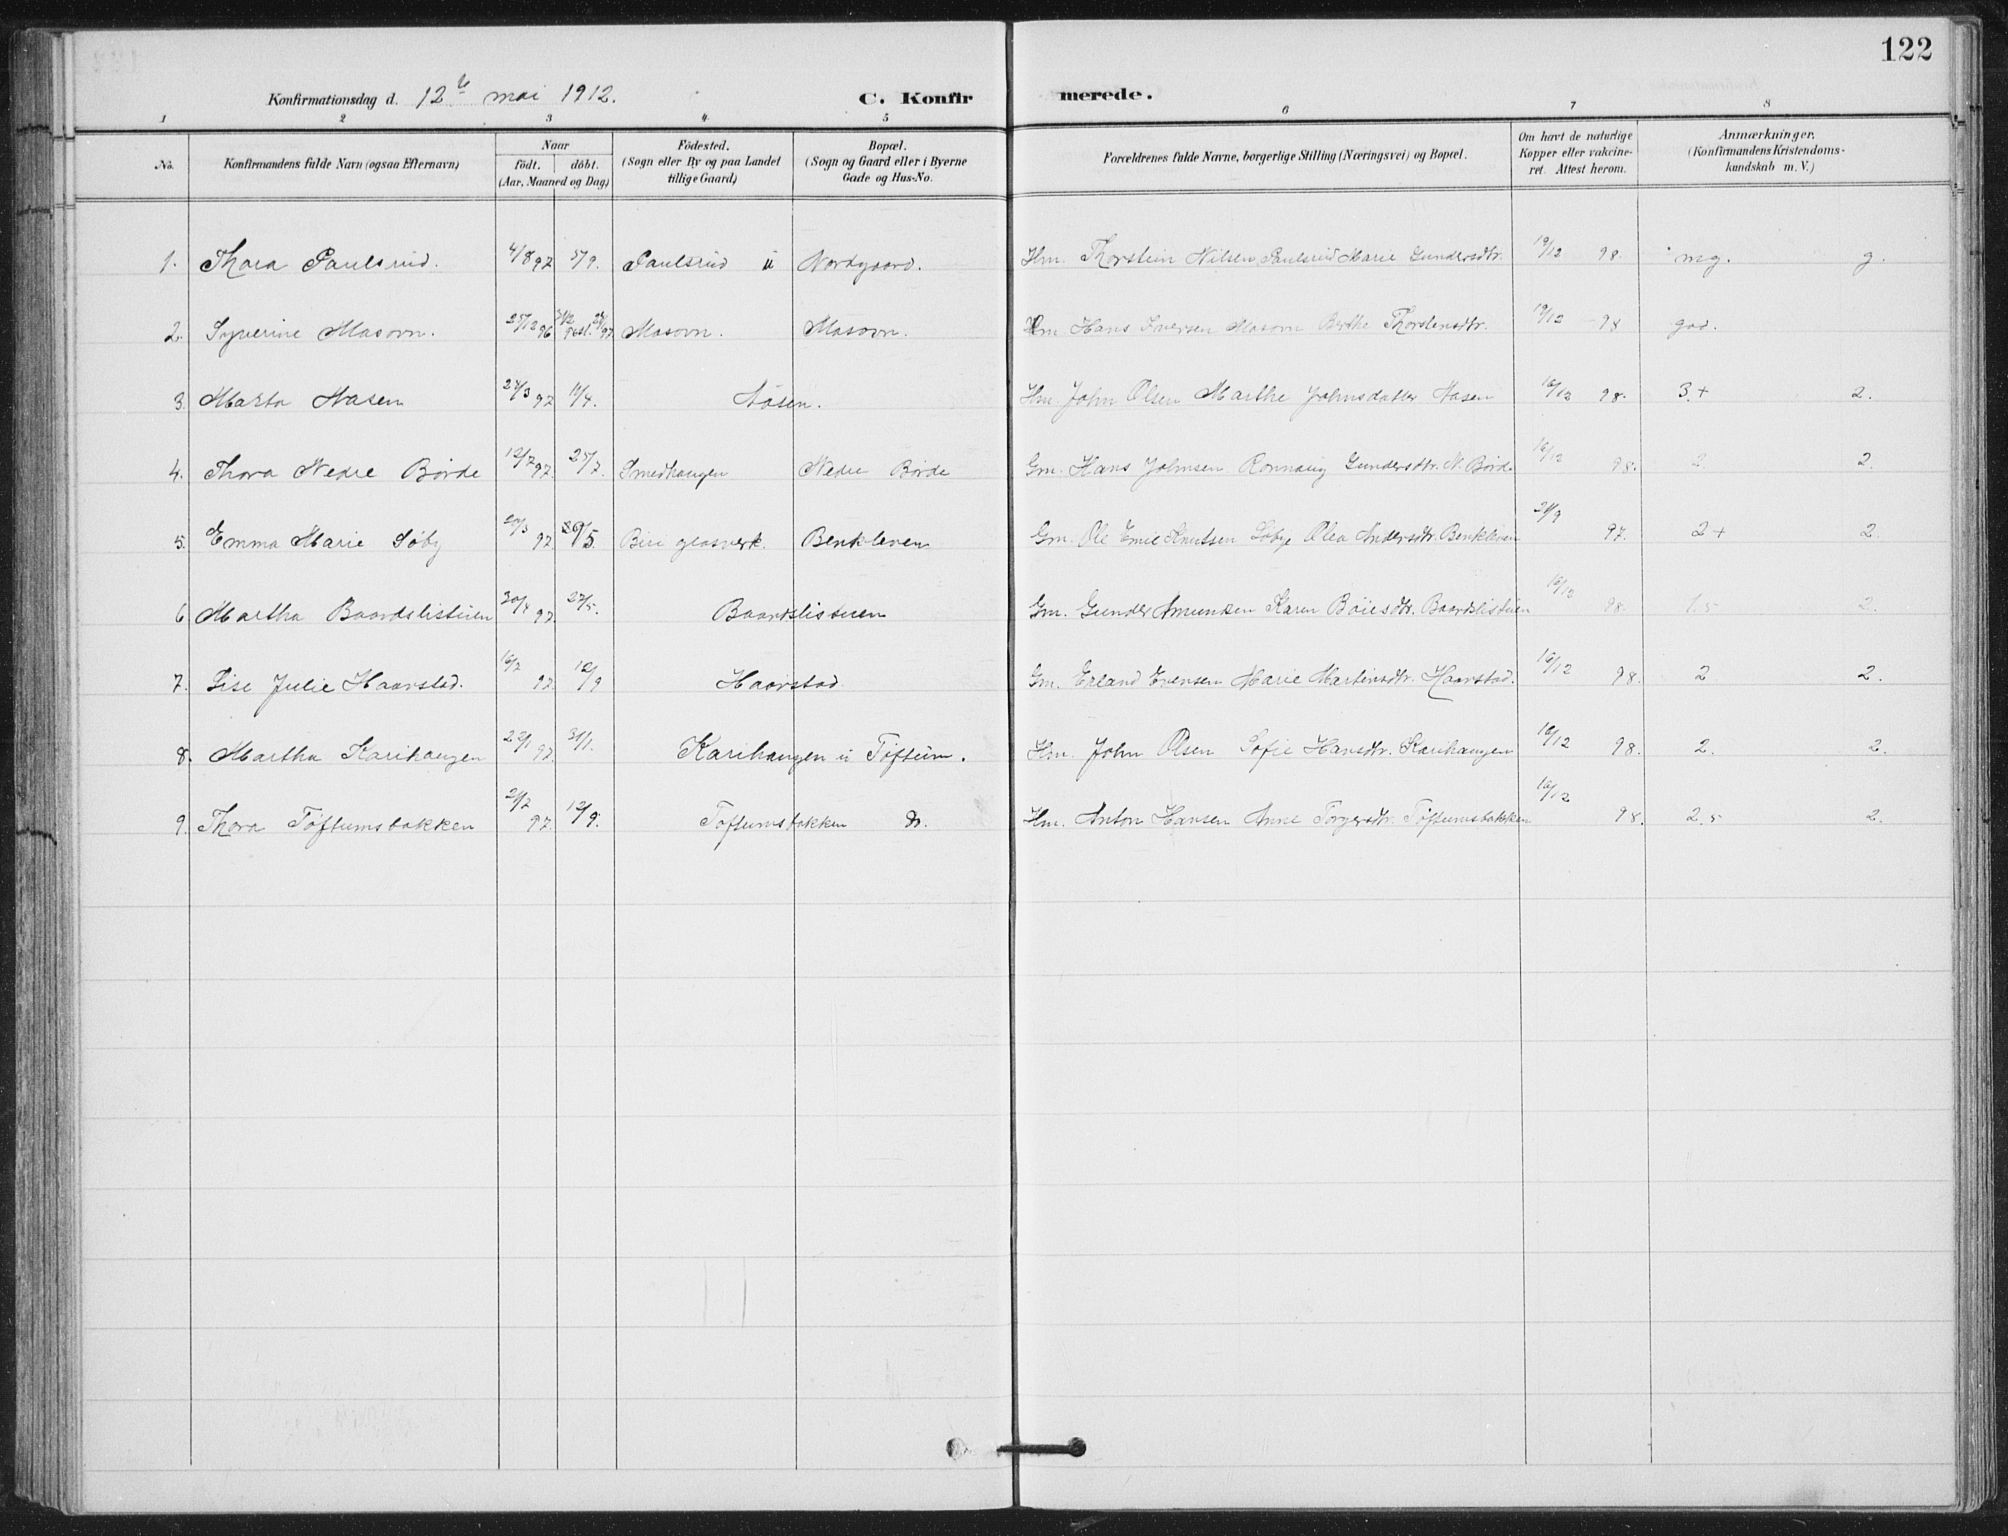 122
Konfirmationsdag d. 12te mai 1912. C. Konfirmerede.
1 2 3 4 5 6 7 8
No. Konfirmandens fulde Navn (ogsaa Efternavn) Naar födt. döbt. (Aar, Maaned og Dag) Födested. (Sogn eller By og paa Landet tillige Gaard) Bopæl. (Sogn og Gaard eller i Byerne Gade og Hus-No. Forældrenes fulde Navne, borgerlige Stilling (Næringsvei) og Bopæl. Om havt de naturlige Kopper eller vakcineret. Attest herom. Anmærkninger. (Konfirmandens Kristendomskundskab m. V.)
1. Thora Paulsrud. 4/8 97 5/9. Paulsrud u Nordgaard. Hm. Thorstein Nilsen Paulsrud Marie Gundersdtr. 19/12 98. mg. g.
2. Syverine Masovn. 25/12 96 Masovn. Masovn. Hm Hans Iversen Masovn Berthe Thorstensdtr. 19/12 98 god.
3. Marta Nasen 97 11/4. Nasen. Hm. John Olsen Marthe Johnsdatter Nasen 16/12 98. 3+ 2.
4. Thora Nedre Börde 12/7 97. 25/7. Smedhaugen Nedre Börde Gm. Hans Johnsen Ronnaug Gundersdtr. N. Börde 16/12 98. 2. 2.
5. Emma Marie Söby 97. Biri glasverk. Benkleven Gm. Ole Emil Knutsen Söbye Olea Andersdtr. Benkleven 97. 2+ 2.
6 Martha Baardslistuen 30/4 97. 27/5. Baardslistuen Gm. Gunder Amunsen Karen Böiesdtr. Baardslistuen 16/12 98. 1.5 2.
7. Lise Julie Haarstad. 16/7 97. 12/9 Haarstad Gm. Erland Evensen Marie Martinsdtr. Haarstad. 16/12 98. 2 2.
8. Martha Karihaugen 22/1 97. 31/1. Karihaugen u Töftum. Hm. John Olsen Sofie Hansdtr. Karihaugen 16/12 98. 2. 2.
9. Thora Töftumsbakken 97. 12/9. Töftumsbakken Do. Hm. Anton Hansen Anne Torgersdtr. Töftumsbakken 16/12 98. 2.5 2.